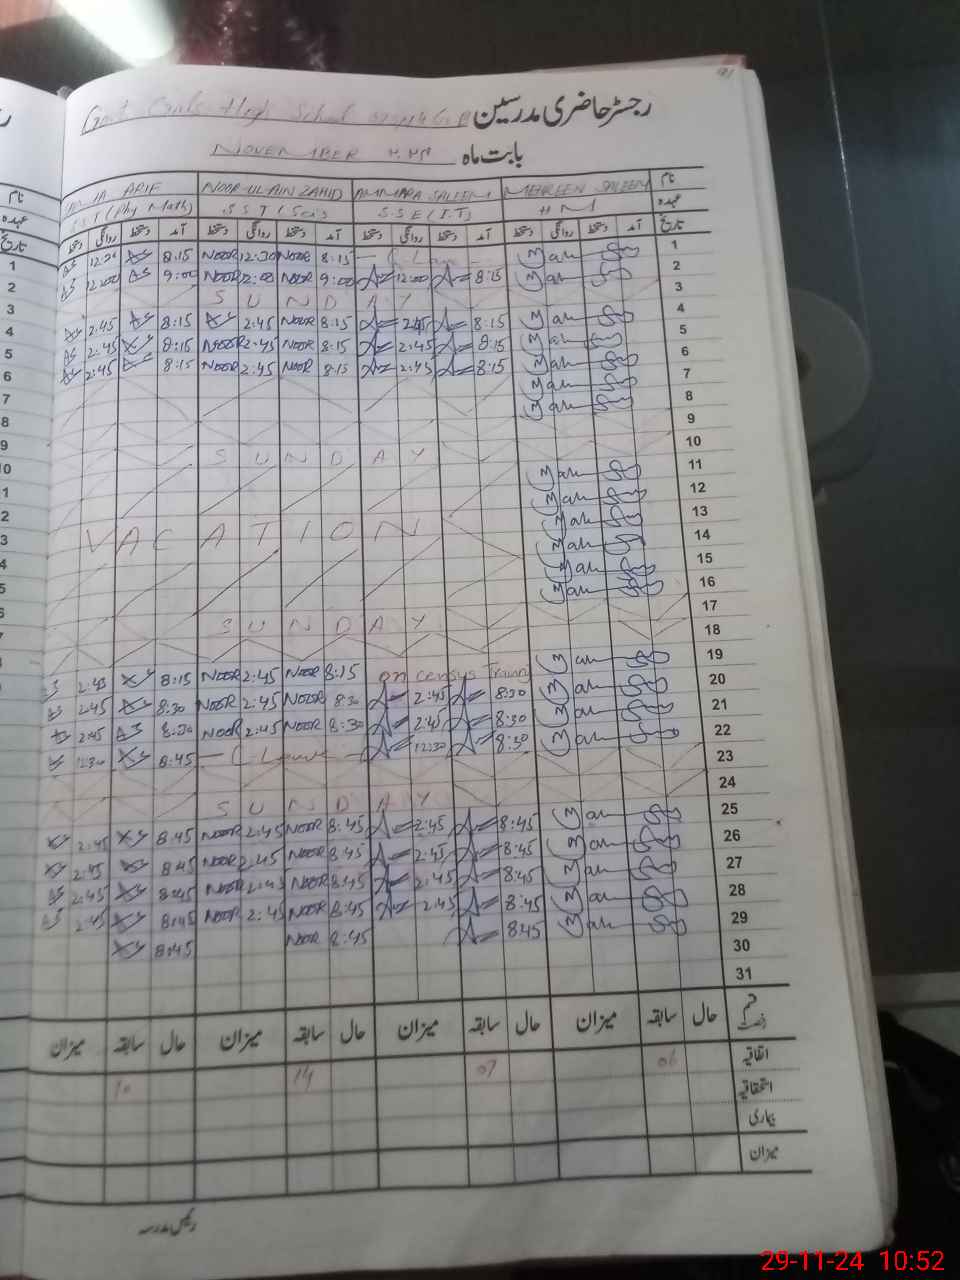 رجسٹر حاضری مدرسین
Govt Girls High School G B
بابت ماہ NOVEMBER ۲۰۲۴
نام MEHREEN SALEEM AMMARA SALEEM NOOR-UL-AIN ZAHID ARIF
عہدہ HM SSE (I.T) SST (Sci) SST (Phy Math)
تاریخ آمد دستخط روانگی دستخط آمد دستخط روانگی دستخط آمد دستخط روانگی دستخط آمد دستخط روانگی دستخط
1 C Leave 8:15 NOOR 12:30 NOOR 8:15 12:30
2 8:15 12:00 9:00 NOOR 2:00 NOOR 9:00 12:00
3 SUNDAY
4 8:15 2:45 8:15 NOOR 2:45 8:15 2:45
5 8:15 2:45 8:15 NOOR 2:45 NOOR 8:15 2:45
6 8:15 2:45 8:15 NOOR 2:45 NOOR 8:15 2:45
7
8
9
10 SUNDAY
11
12
13 VACATION
14
15
16
17 SUNDAY
18
19 on census Training 8:15 NOOR 2:45 NOOR 8:15 2:45
20 8:30 2:45 8:30 NOOR 2:45 NOOR 8:30 2:45
21 8:30 2:45 8:30 NOOR 2:45 NOOR 8:30 2:45
22 8:30 12:30 C Leave 8:45 12:30
23
24 SUNDAY
25 8:45 2:45 8:45 NOOR 2:45 NOOR 8:45 2:45
26 8:45 2:45 8:45 NOOR 2:45 NOOR 8:45 2:45
27 8:45 2:45 8:45 NOOR 2:45 NOOR 8:45 2:45
28 8:45 2:45 8:45 NOOR 2:45 NOOR 8:45 2:45
29 8:45 8:45 NOOR 8:45
30
31
قسم رخصت حال سابقہ میزان حال سابقہ میزان حال سابقہ میزان حال سابقہ میزان
اتفاقیہ 06 07 14 10
استحقاقیہ
بیماری
میزان
رئیس مدرسہ
29-11-24 10:52